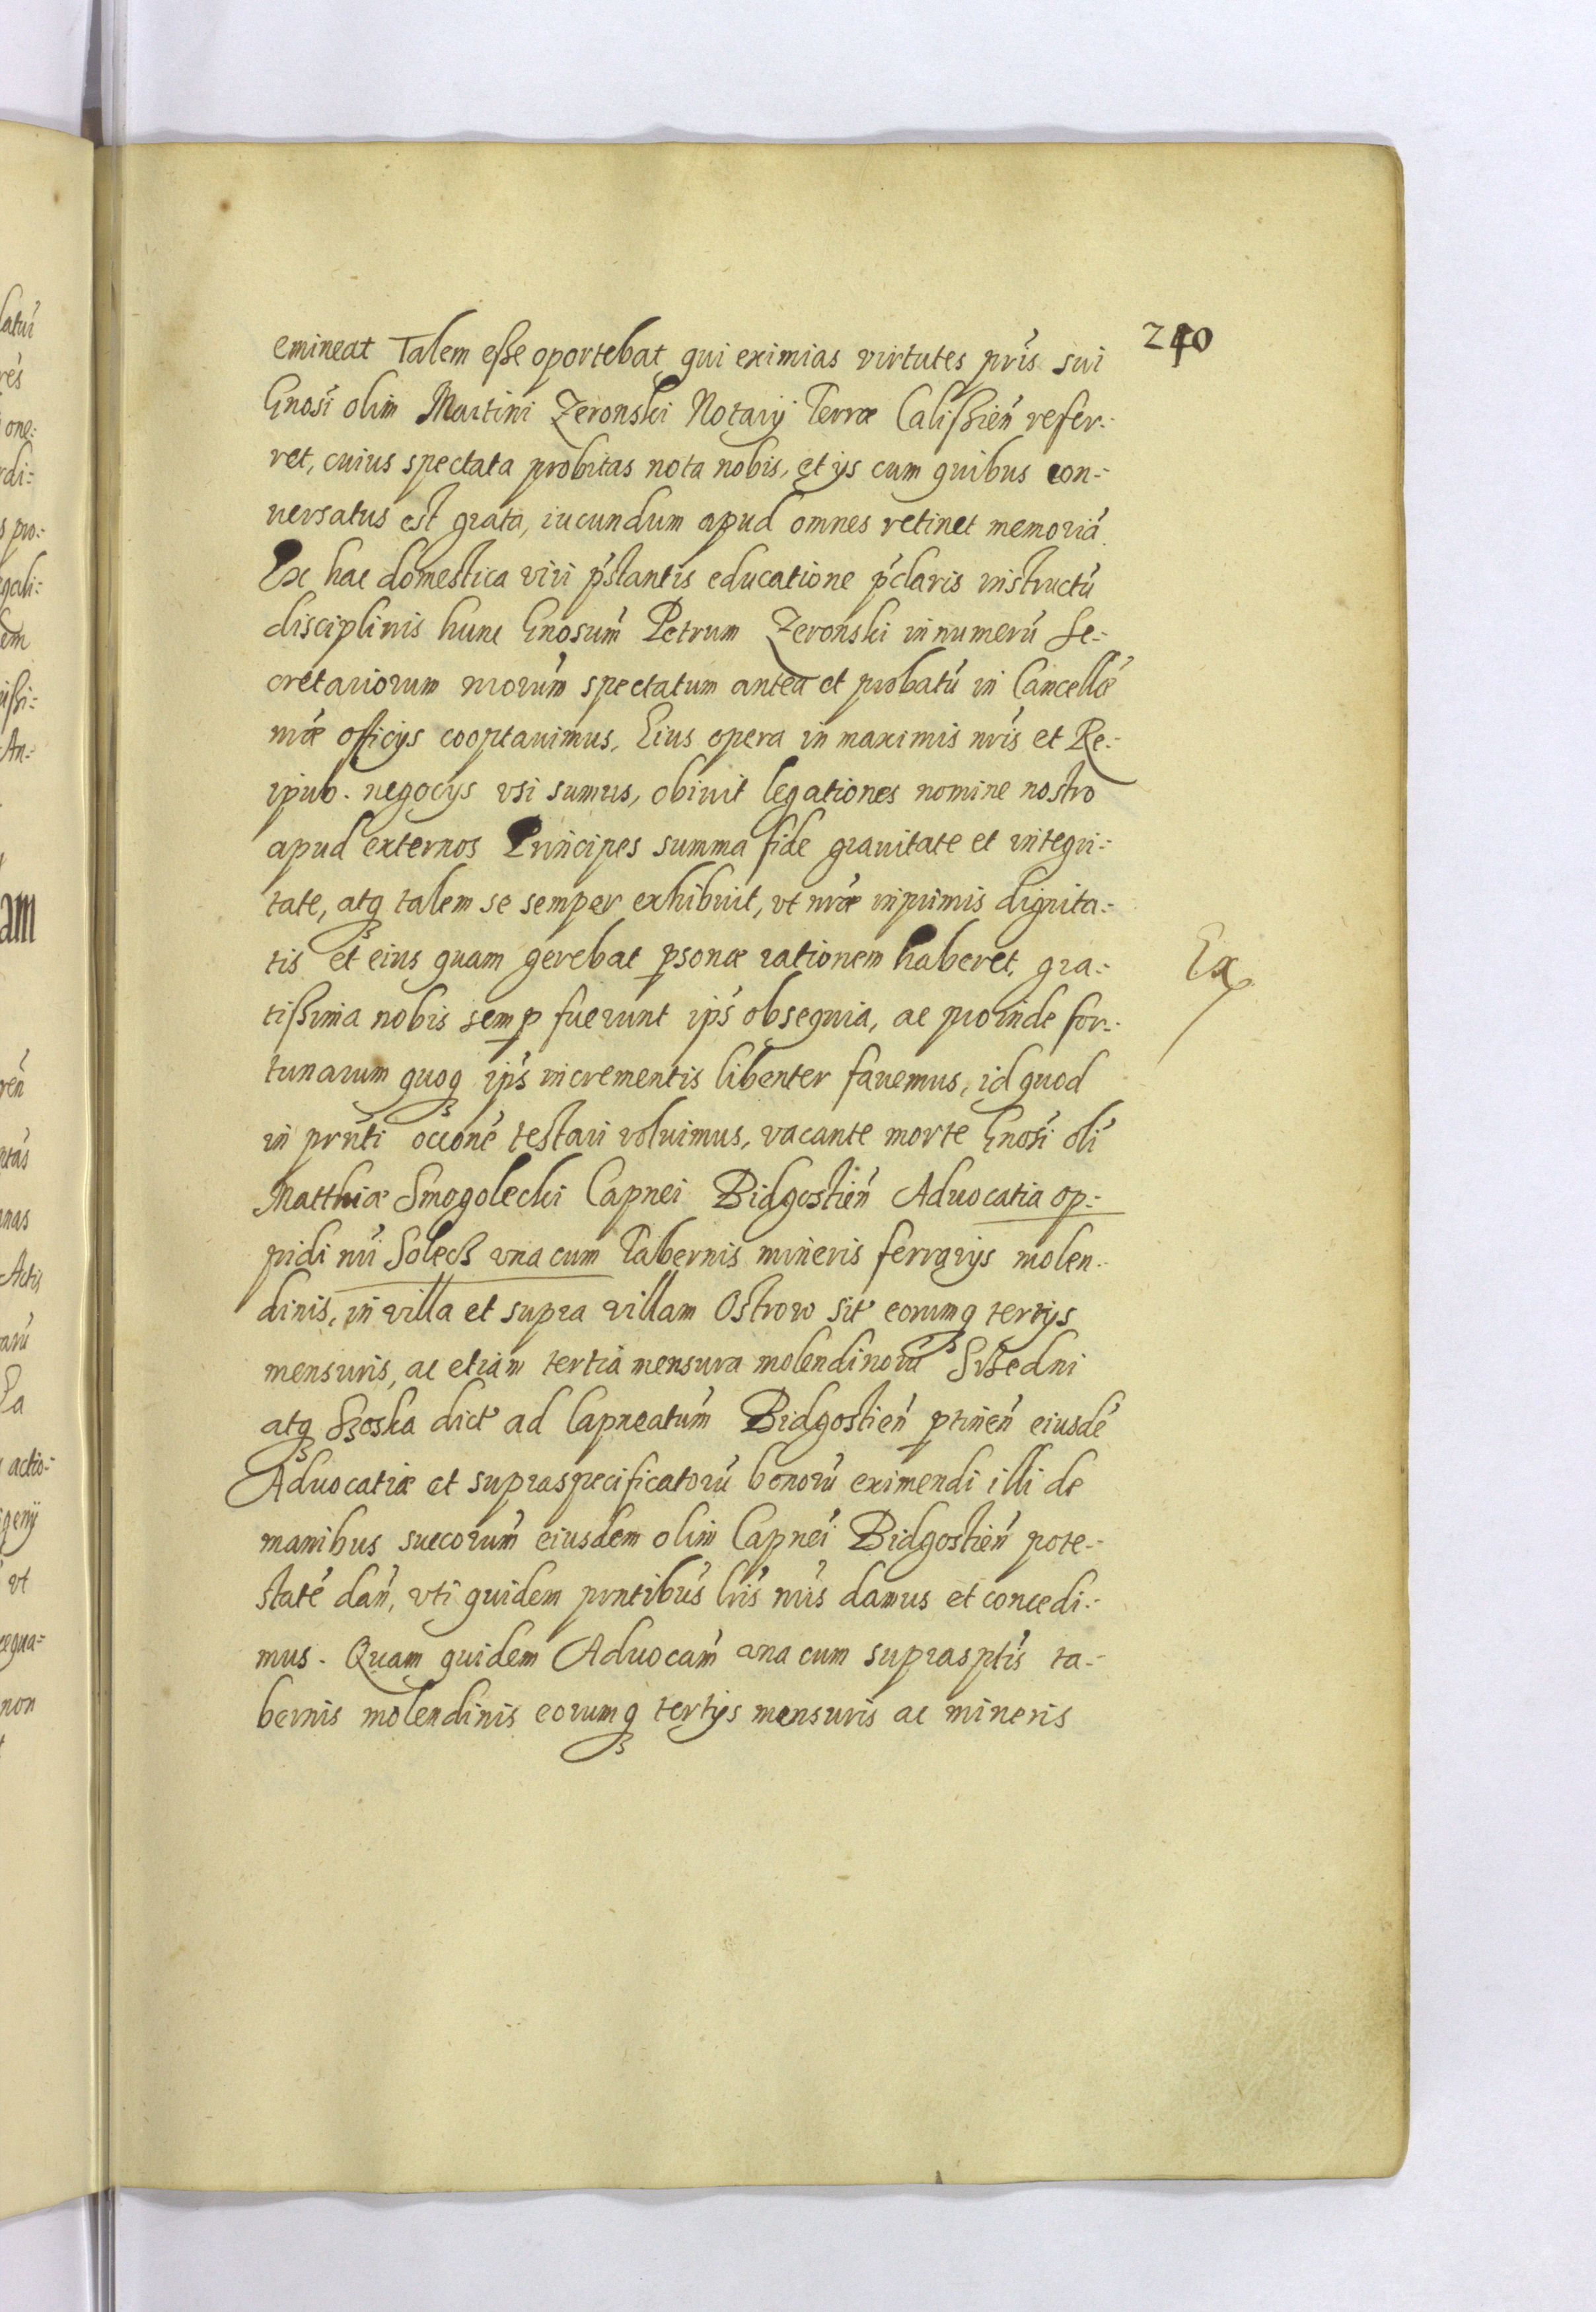 240
emineat Talem esse oportebat, qui eximias virtutes pris sui
Gnosi olim Martini Zeronski Notarij Terræ Calissien refer-
ret, cuius spectata probitas nota nobis, et ijs cum quibus con-
uersatus est grata, iucundum apud omnes retinet memoriá.
Ex hac domestica viri pstantis educatione pclaris instructú
disciplinis hunc Gnosum Petrum Zeronski in numerú Se-
cretariorum nrorum spectatum antea et probatú in Cancellæ
nræ officijs cooptauimus, Eius opera in maximis nris et Re-
ipub. negocijs vsi sumus, obiuit legationes nomine nostro
apud externos Principes summa fide grauitate et integri-
tate, atq talem se semper exhibuit, vt nræ inprimis dignita-
tis et eius quam gerebat psonæ rationem haberet, gra-
Ex
tissima nobis semp fuerunt ips obsequia, ac proinde for-
tunarum quoq ips incrementis libenter fauemus, id quod
in prnti occone testari voluimus, vacante morte Gnosi oli
Matthiæ Smogolecki Capnei Bidgostien Aduocatia op-
pidi nri Solecz vna cum Tabernis mineris ferrarijs molen-
dinis, in villa et supra villam Ostrow sit eorumq tertijs
mensuris, ac etiam tertia mensura molendinorú Srzedni
atq Szoska dict ad Capneatum Bidgostien ptinen eiusdé
Aduocatiæ et supraspecificatorú bonorú eximendi illi de
manibus succorum eiusdem olim Capnei Bidgostien pote-
staté dan, vti quidem prntibus lris nris damus et concedi-
mus. Quam quidem Aduocam vna cum suprasptis ta-
bernis molendinis eorumq tertijs mensuris ac mineris